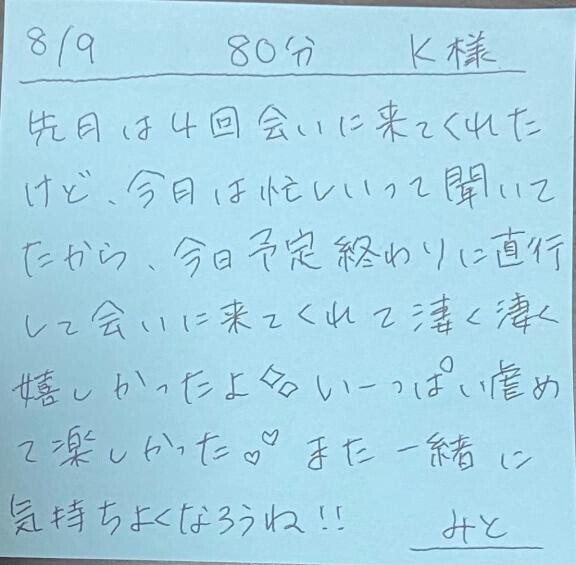 8/9 80分 K様
先月は4回会いに来てくれた
けど、今月は忙しいって聞いて
たから、今日予定終わりに直行
して会いに来てくれて凄く凄く
嬉しかったよ◇◇いーっぱい虐め
て楽しかった♡♡また一緒に
気持ちよくなろうね!!
みと